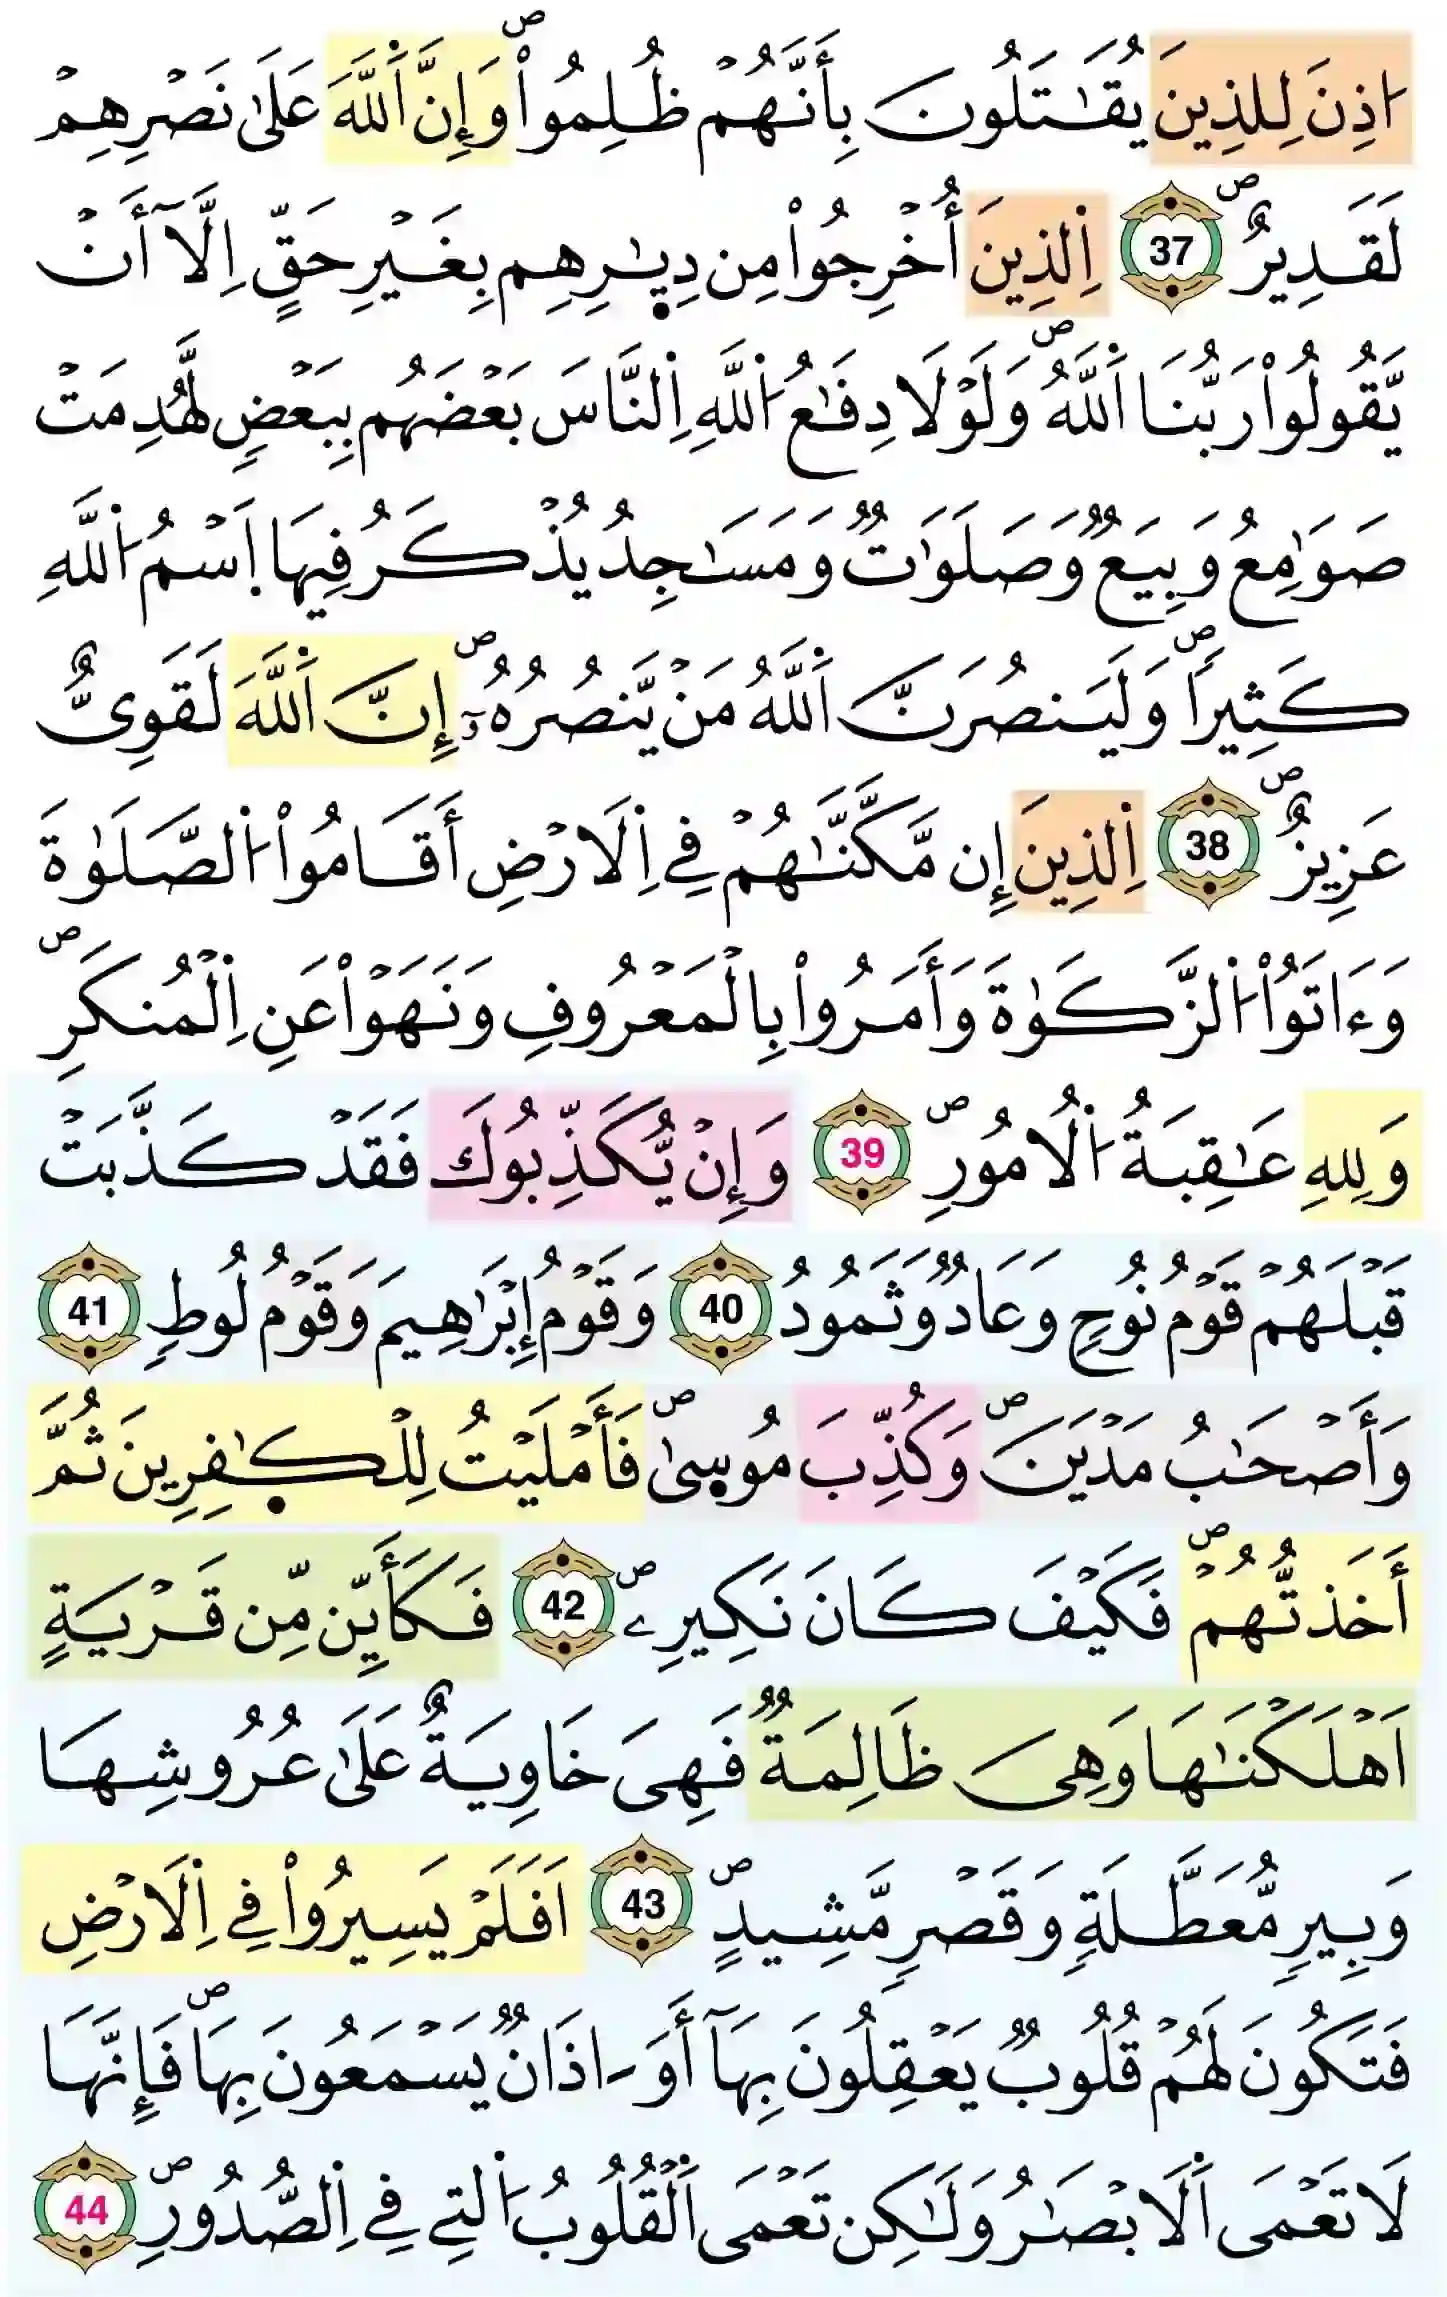 اُ۬ذِنَ لِلذِينَ يُقَٰتَلُونَ بِأَنَّهُمْ ظُلِمُواْۖ وَإِنَّ اَ۬للَّهَ عَلَىٰ نَصْرِهِمْ
لَقَدِيرٌۖ 37 اِ۬لذِينَ أُخْرِجُواْ مِن دِيٰ۪رِهِم بِغَيْرِ حَقٍّ اِلَّآ أَنْ
يَّقُولُواْ رَبُّنَا اَ۬للَّهُۖ وَلَوْلَا دِفَٰعُ اُ۬للَّهِ اِ۬لنَّاسَ بَعْضَهُم بِبَعْضٍ لَّهُدِمَتْ
صَوَٰمِعُ وَبِيَعٌ وَصَلَوَٰتٌ وَمَسَٰجِدُ يُذْكَرُ فِيهَا اَ۪سْمُ اُ۬للَّهِ
كَثِيراًۖ وَلَيَنصُرَنَّ اَ۬للَّهُ مَنْ يَّنصُرُهُۥٓۖ إِنَّ اَ۬للَّهَ لَقَوِيٌّ
عَزِيزٌۖ 38 اِ۬لذِينَ إِن مَّكَّنَّٰهُمْ فِي اِ۬لَارْضِ أَقَامُواْ اُ۬لصَّلَوٰةَ
وَءَاتَوُاْ اُ۬لزَّكَوٰةَ وَأَمَرُواْ بِالْمَعْرُوفِ وَنَهَوْاْ عَنِ اِ۬لْمُنكَرِۖ
وَلِلهِ عَٰقِبَةُ اُ۬لُامُورِۖ 39 وَإِنْ يُّكَذِّبُوكَ فَقَدْ كَذَّبَتْ
قَبْلَهُمْ قَوْمُ نُوحٍ وَعَادٌ وَثَمُودُ 40 وَقَوْمُ إِبْرَٰهِيمَ وَقَوْمُ لُوطٍ 41
وَأَصْحَٰبُ مَدْيَنَۖ وَكُذِّبَ مُوس۪ىٰۖ فَأَمْلَيْتُ لِلْكٰ۪فِرِينَ ثُمَّ
أَخَذتُّهُمْۖ فَكَيْفَ كَانَ نَكِيرِۦۖ 42 فَكَأَيِّن مِّن قَرْيَةٍ
اَهْلَكْنَٰهَا وَهِيَ ظَالِمَةٌ فَهِيَ خَاوِيَةٌ عَلَىٰ عُرُوشِهَا
وَبِيرٍ مُّعَطَّلَةٍ وَقَصْرٍ مَّشِيدٍۖ 43 اَفَلَمْ يَسِيرُواْ فِي اِ۬لَارْضِ
فَتَكُونَ لَهُمْ قُلُوبٌ يَعْقِلُونَ بِهَآ أَوَ ـ اذَانٌ يَسْمَعُونَ بِهَاۖ فَإِنَّهَا
لَا تَعْمَى اَ۬لَابْصَٰرُ وَلَٰكِن تَعْمَى اَ۬لْقُلُوبُ اُ۬لتِي فِي اِ۬لصُّدُورِۖ 44